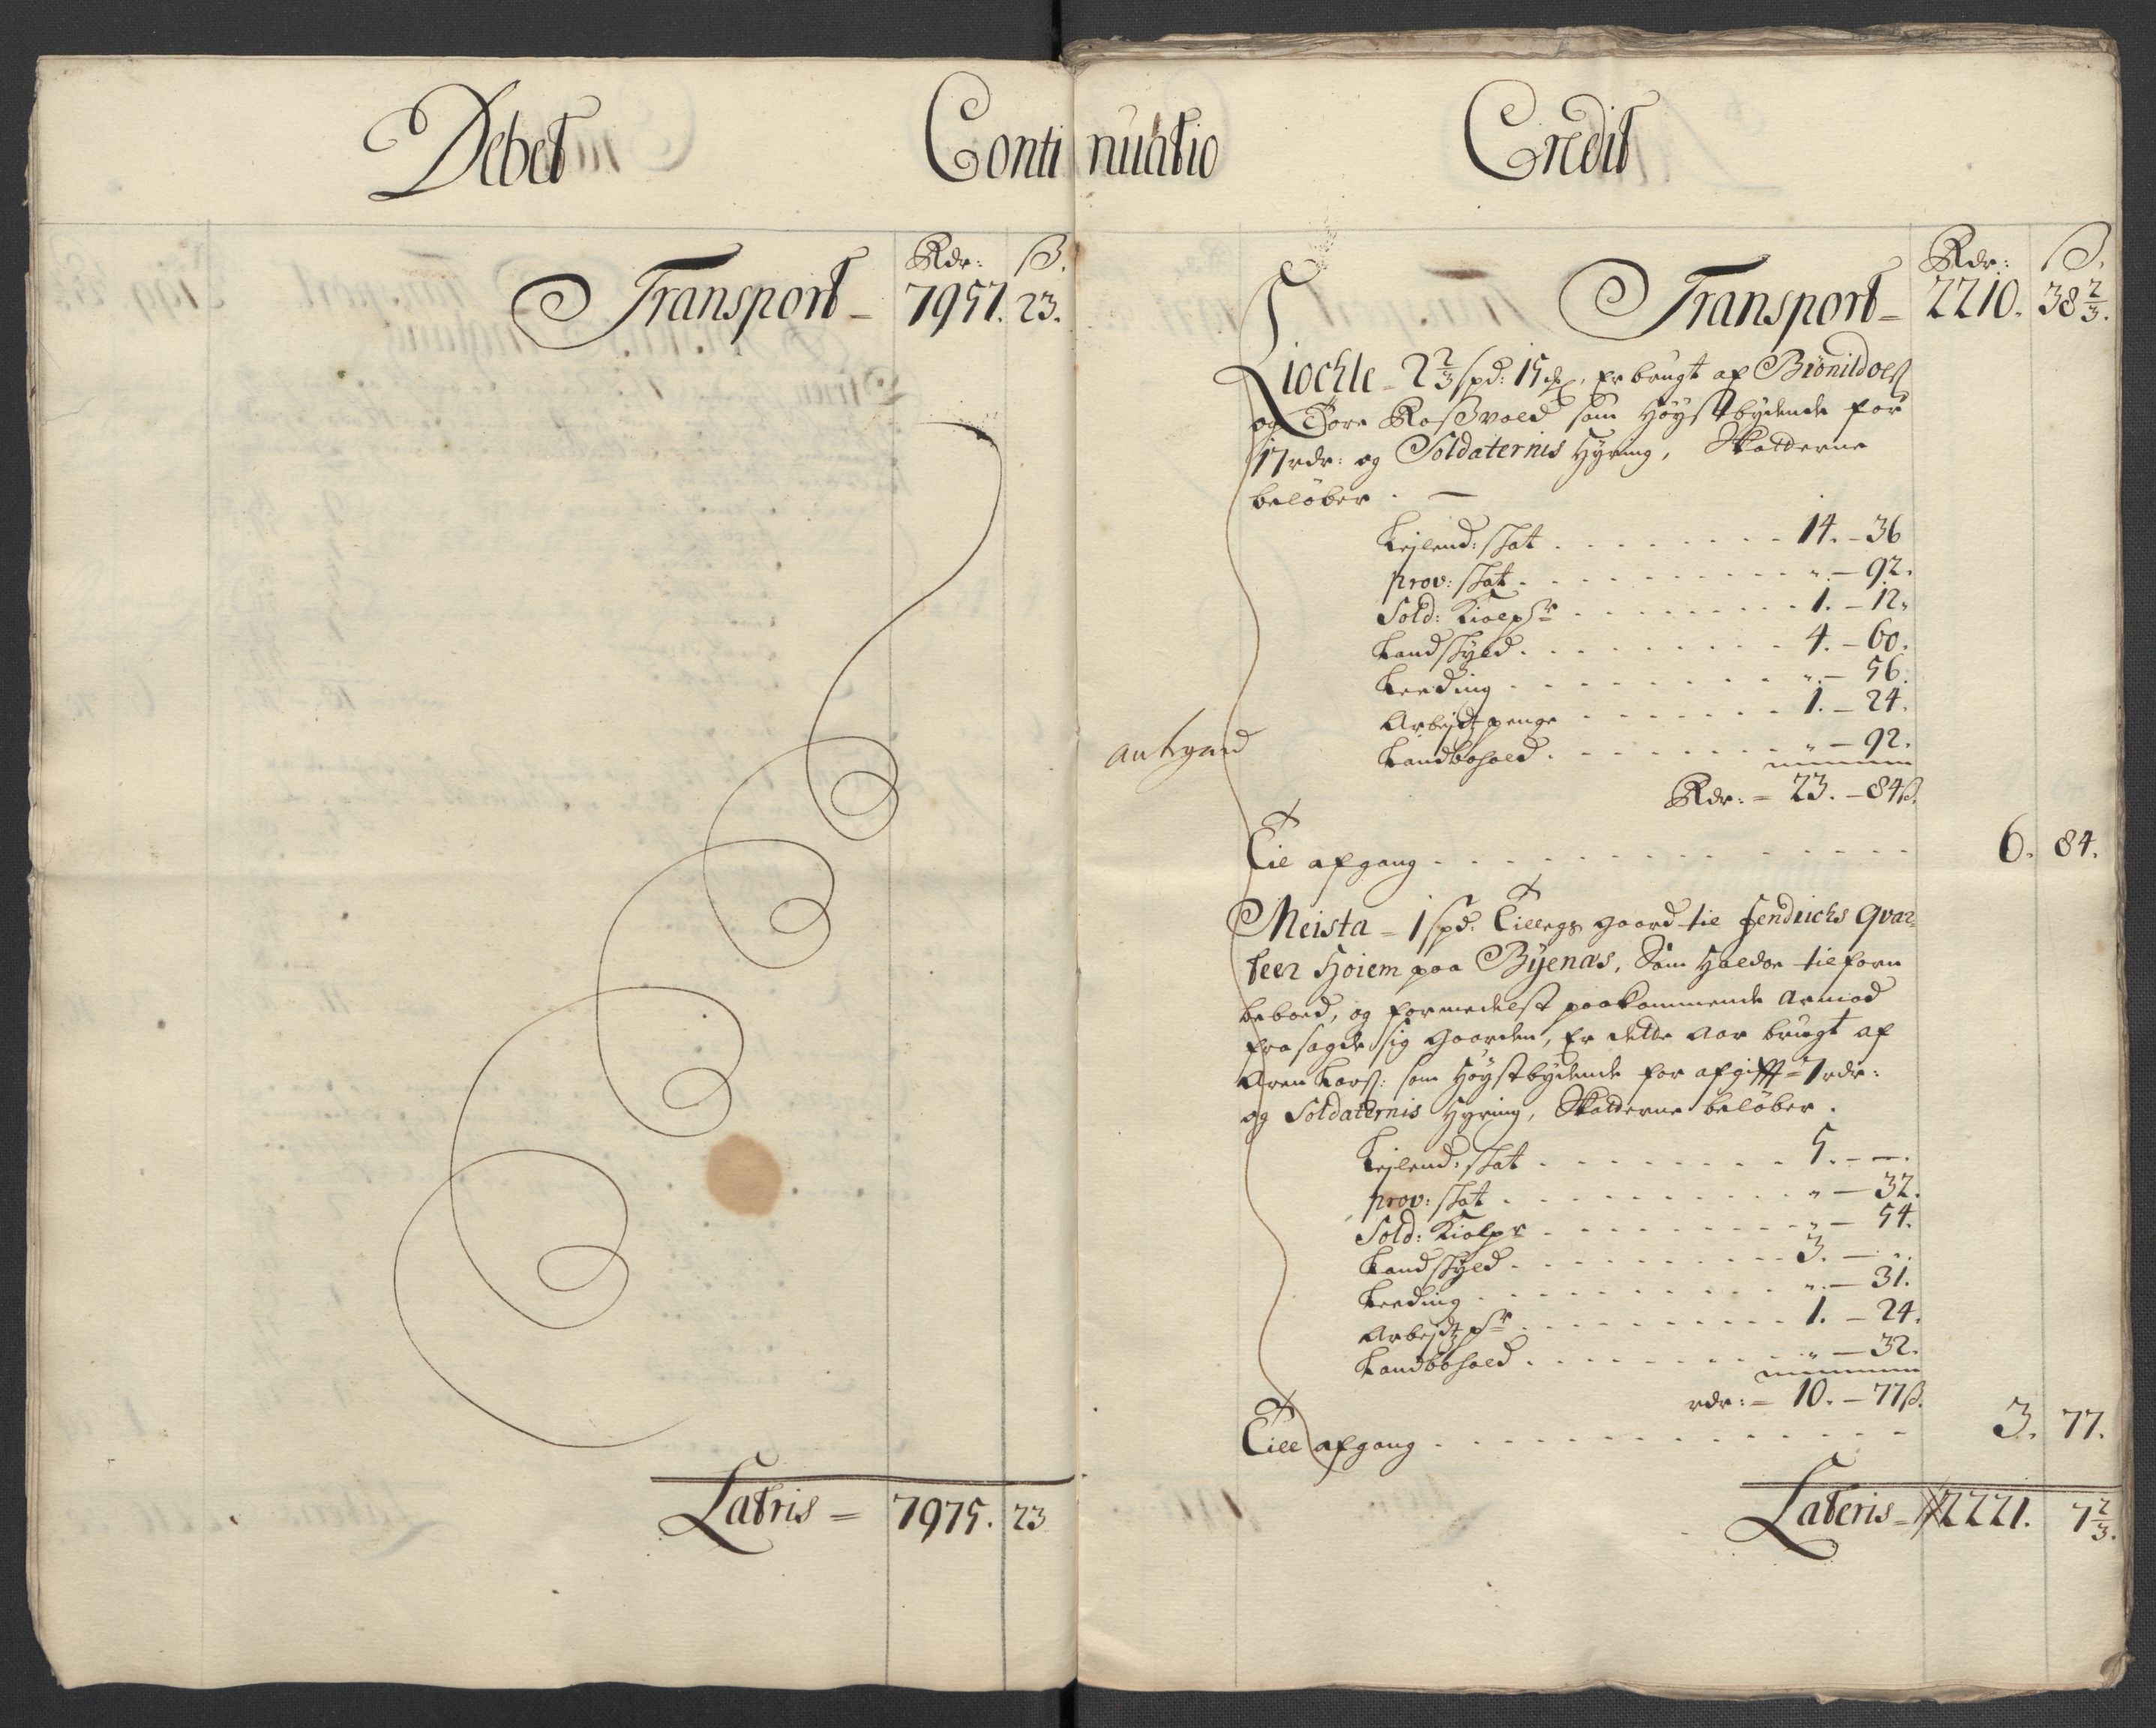 Debet Continuatio Credit
Rdr: β.
Transport – 7957. 23.
Latris = 7975. 23
Rdr: β.
Transport = 2210. 38 2/3.
Liochle – 2 2/3 spd: 15, Er brugt af Brönild oelß
og Tore Roßvold som Höystbydende for
17 rdr: og Soldaternis Hyring, Skatterne
belöber. –
Lejlend: skat . . . . 14. – 36
prov: skat . . . . „ – 92.
Sold: Kioelp . . . . 1. – 12.
Landskyld . . . . 4. – 60.
Leeding . . . . „ – 56.
Arbejdtzpenge . . . . 1. – 24.
Landbohold . . . . „ – 92.
Rdr: = 23. – 84β.
Til afgang . . . . 6. 84.
Meista = 1 spd. Tillegs gaard til Hendrichs Qvar-
teer Hoiem paa Byenæs, Som Haldor tilforn
beboed, og formedelst paakommende armod
frasagde sig gaarden, Er dette Aar brugt af
Aren Larß: som Höystbydende for afgifft = 7 rdr:
og Soldaternis Hyring, Skatterne belöber.
Lejlend: skat . . . . 5. – –.
prov: skat . . . . „ – 32.
Sold: Kiolpr . . . . „ – 54.
Landskyld . . . . 3. – „.
Leeding . . . . „ – 31.
Arbejdtz pr . . . . 1. – 24.
Landbohold . . . . „ – 32.
rdr: = 10. – 77β.
Till afgang . . . . 3. 77.
Lateris = 2221. 7 2/3.